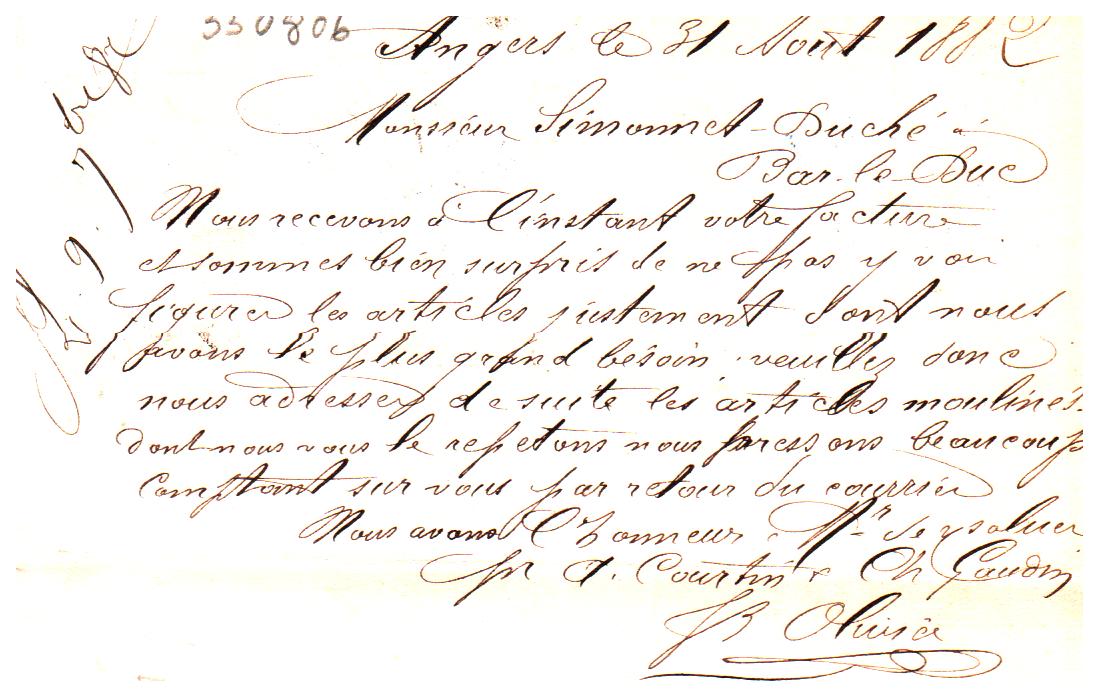 330806
Angers le 31 Aout 1882
Monsieur Simonnet-Duché à
Bar-le-Duc
Nous recevons à l'instant votre facture
et sommes bien surpris de ne pas y voir
figurer les articles justement dont nous
avons le plus grand bésoin. veuillez donc
nous adresser de suite les articles moulinés.
dont nous vous le repetons nous pressons beaucoup
comptant sur vous par retour du courrier
Nous avons l'honneur Mr de vs saluer
pr A. Courtin & Ch Gaudin
JB